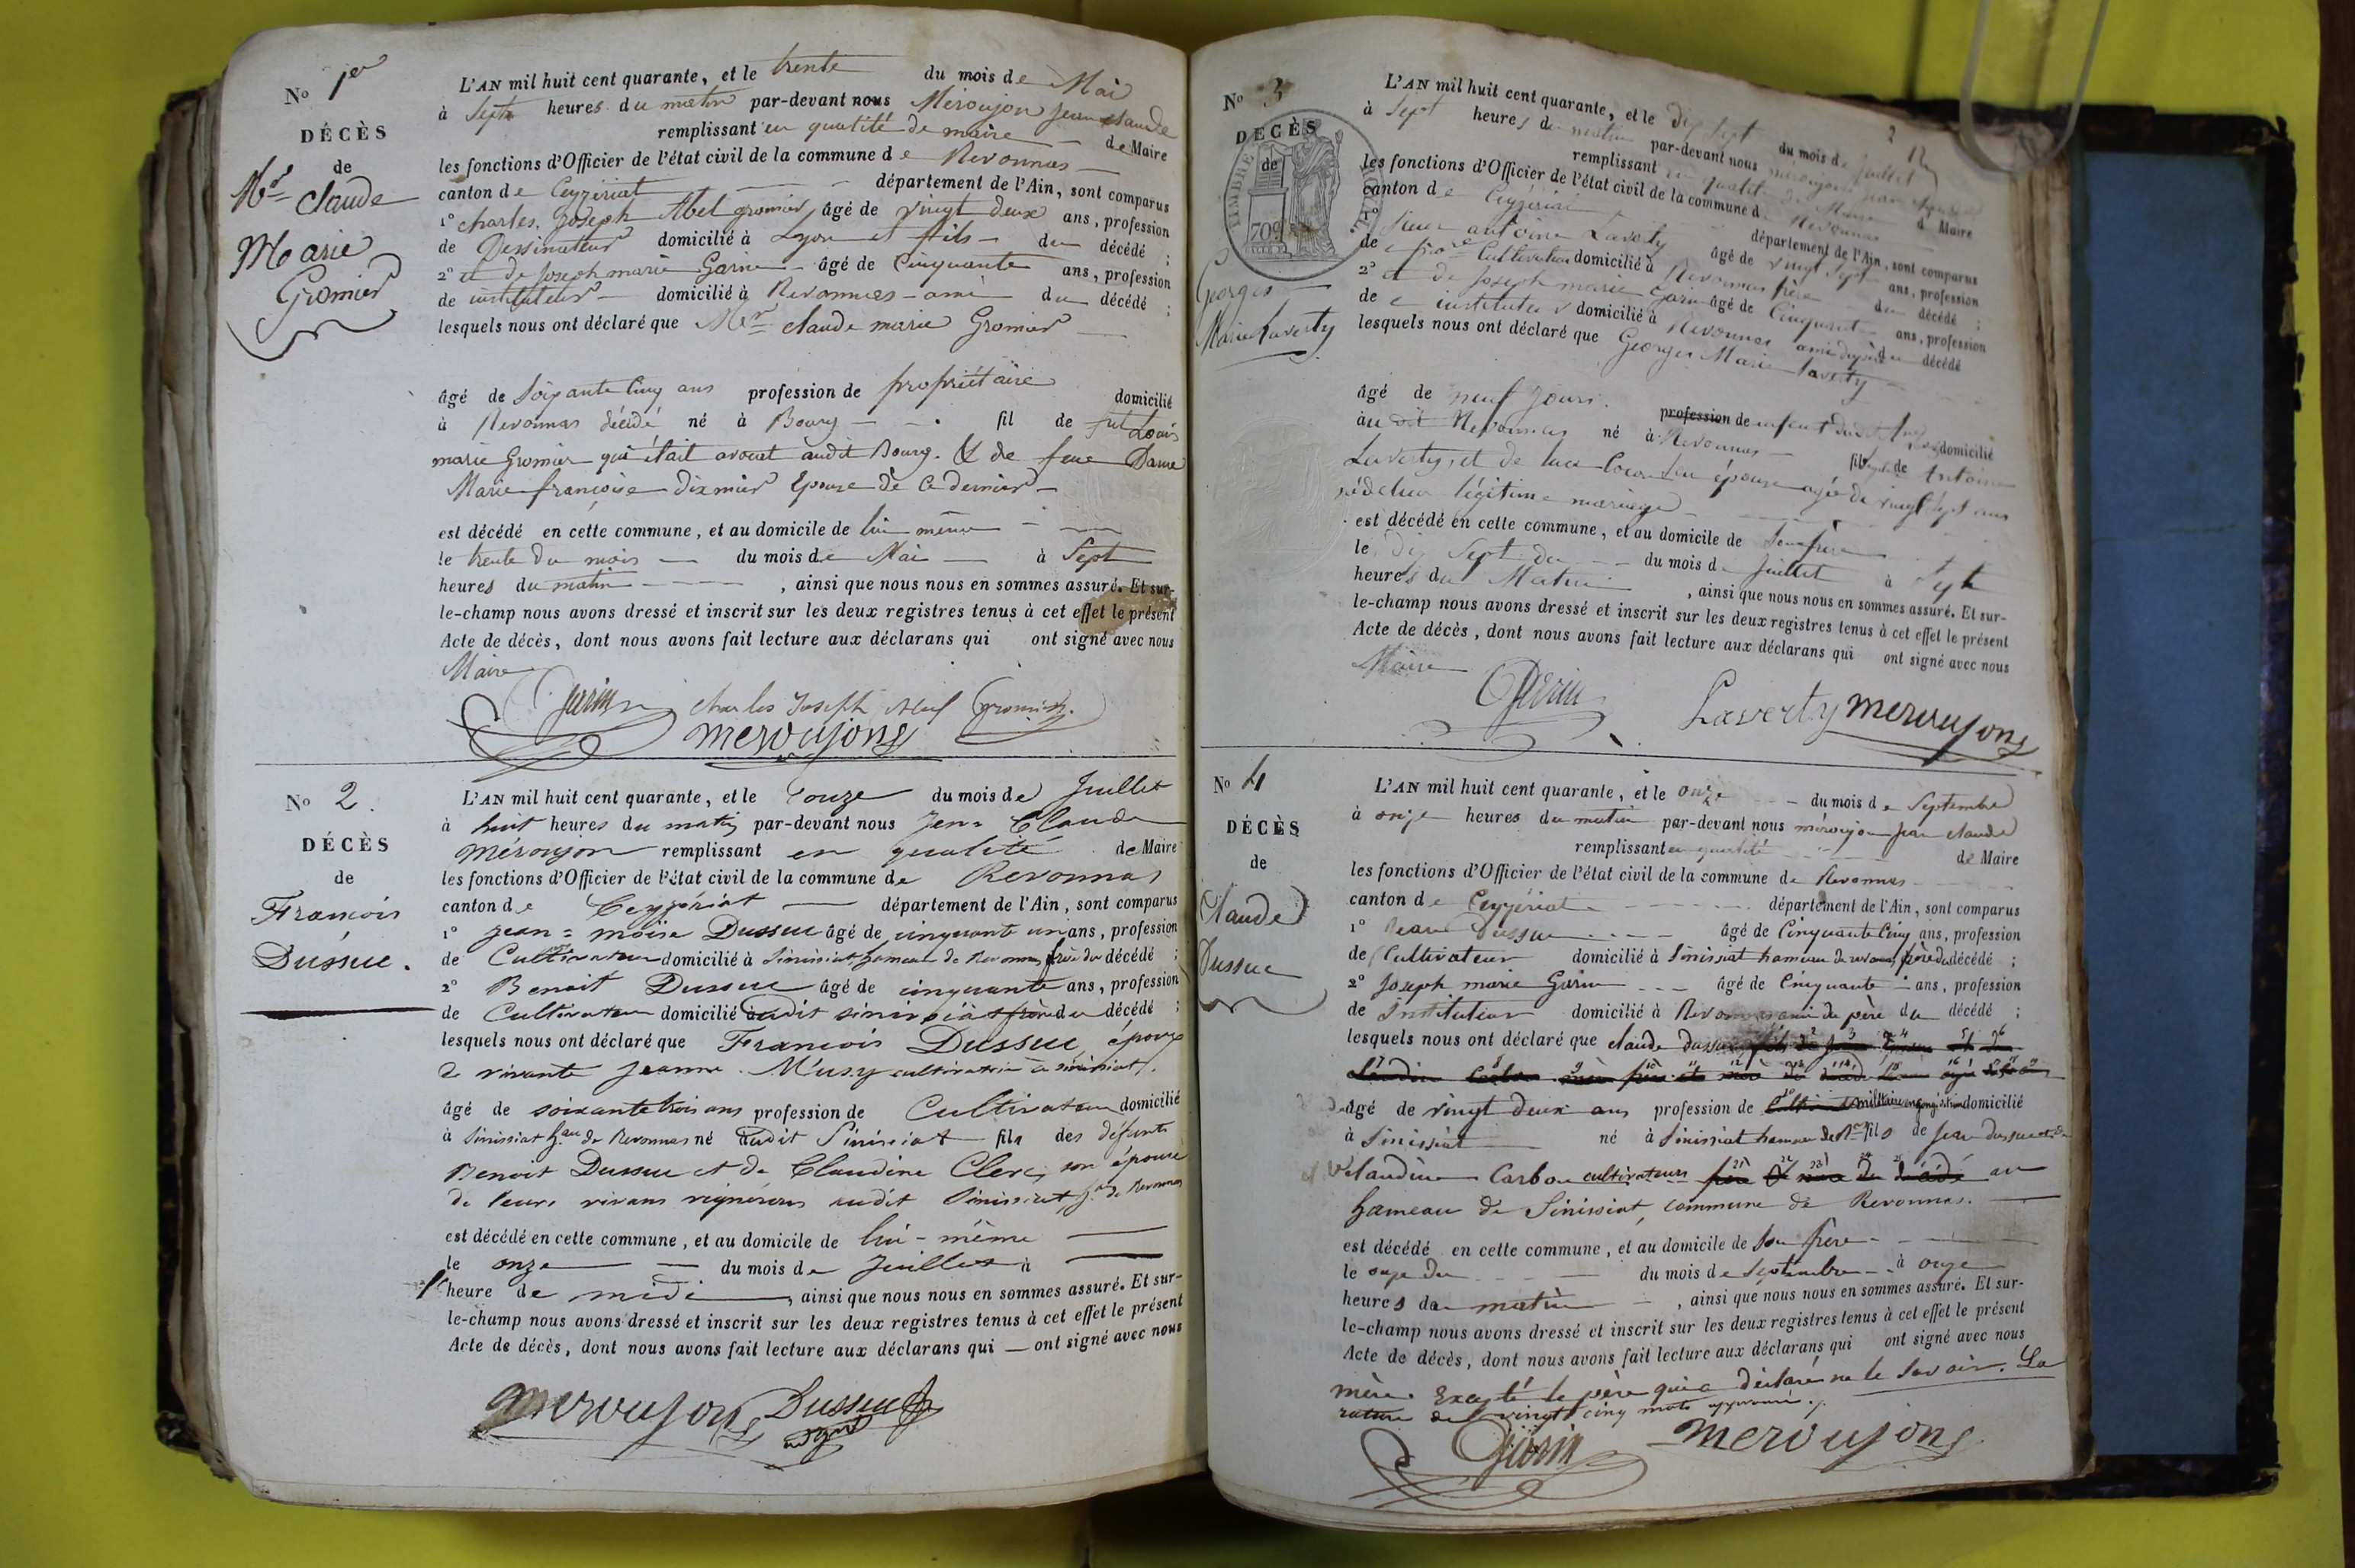 No 1er
DÉCÈS
de
Mr Claude
Marie
Gromier
L'AN mil huit cent quarante, et le trente du mois de Mai
à Sept heures du matin par-devant nous Méroujon jean claude
remplissant en qualité de maire de Maire
les fonctions d'Officier de l'état civil de la commune de Revonnas
canton de Ceyzériat département de l'Ain, sont comparus
1° charles, Joseph Abel gromier, âgé de vingt deux ans, profession
de Dessinateur domicilié à Lyon et fils du décédé ;
2° et de Joseph marie Garin âgé de Cinquante ans, profession
de instituteur domicilié à Revonnas - ami du décédé ;
lesquels nous ont déclaré que Mr claude marie Gromier
âgé de Soixante Cinq ans profession de propriétaire domicilié
à Revonnas décédé né à Bourg fil de fut Louis
marie Gromier qui était avouet audit Bourg. & de feue Dame
Marie françoise dixmier Epouse de Ce dernier
est décédé en cette commune, et au domicile de lui même
le trente du mois du mois de Mai à Sept
heures du matin , ainsi que nous nous en sommes assuré. Et sur-
le-champ nous avons dressé et inscrit sur les deux registres tenus à cet effet le présent
Acte de décès, dont nous avons fait lecture aux déclarans qui ont signé avec nous
Maire
Garin charles Joseph Abel Gromier.
meroujong
No 2.
DÉCÈS
de
François
Dussuc.
L'AN mil huit cent quarante, et le douze du mois de Juillet
à huit heures du matin par-devant nous Jean Claude
Méroujon remplissant en qualité de Maire
les fonctions d'Officier de l'état civil de la commune de Revonnas
canton de Ceyzériat département de l'Ain, sont comparus
1° jean = moïse Dussuc âgé de cinquante un ans, profession
de Cultivateur domicilié à Sinissiat, hameau de Revonnas frère du décédé ;
2° Benoit Dussuc âgé de cinquante ans, profession
de Cultivateur domicilié audit sinissiat frère du décédé ;
lesquels nous ont déclaré que François Dussuc, époux
de vivante Jeanne Musy cultivatrice à sinissiat,
âgé de soixante trois ans profession de Cultivateur domicilié
à Sinissiat hau de Revonnas né audit Sinissiat fils des défunts
Benoit Dussuc et de Claudine Clerc, son épouse
de leurs vivans vignerons audit Sinissiat, hau de Revonnas
est décédé en cette commune, et au domicile de lui-même
le onze du mois de Juillet à
1 heure de midi , ainsi que nous nous en sommes assuré. Et sur-
le-champ nous avons dressé et inscrit sur les deux registres tenus à cet effet le présent
Acte de décès, dont nous avons fait lecture aux déclarans qui ont signé avec nous
meroujong Dussuc
No 3
DÉCÈS
de
TIMBRE ROYAL
70c
Georges
Marie Laverty
L'AN mil huit cent quarante, et le dix sept du mois de Juillet
à Sept heures du matin par-devant nous meroujon jean claude
remplissant en qualité de Maire de Maire
les fonctions d'Officier de l'état civil de la commune de Revonnas
canton de Ceyzériat département de l'Ain, sont comparus
1° Sieur antoine Laverty âgé de vingt Sept ans, profession
de Cultivateur domicilié à Revonnas père du décédé ;
2° et de Joseph marie Garin âgé de Cinquante ans, profession
de instituteur domicilié à Revonnas ami du père du décédé
lesquels nous ont déclaré que Georges Marie Laverty
âgé de neuf Jours. profession de enfant domicilié
au dit Revonnas né à Revonnas fils de Antoine
Laverty, et de Son épouse agé de vingt Sept ans
légitime mariage
est décédé en cette commune, et au domicile de Son père
le dix Sept du du mois de Juillet à Sept
heures du Matin , ainsi que nous nous en sommes assuré. Et sur-
le-champ nous avons dressé et inscrit sur les deux registres tenus à cet effet le présent
Acte de décès, dont nous avons fait lecture aux déclarans qui ont signé avec nous
Maire
Garin Laverty meroujong
No 4
DÉCÈS
de
Claude
Dussuc
L'AN mil huit cent quarante, et le onze du mois de Septembre
à onze heures du matin par-devant nous méroujon jean claude
remplissant en qualité de Maire
les fonctions d'Officier de l'état civil de la commune de Revonnas
canton de Ceyzériat département de l'Ain, sont comparus
1° Jean Dussuc âgé de Cinquante Cinq ans, profession
de Cultivateur domicilié à Sinissiat hameau de revonnas, père du décédé ;
2° Joseph marie Garin âgé de Cinquante ans, profession
de Instituteur domicilié à Revonnas ami du père du décédé ;
lesquels nous ont déclaré que claude dussuc
âgé de vingt deux ans profession de militaire domicilié
à Sinissiat né à Sinissiat hameau de Ras fils de jean dussuc et de
Claudine Carbon cultivateurs père & mère du décédé au
hameau de Sinissiat, commune de Revonnas.
est décédé en cette commune, et au domicile de Son père
le onze du du mois de Septembre à onze
heures du matin , ainsi que nous nous en sommes assuré. Et sur-
le-champ nous avons dressé et inscrit sur les deux registres tenus à cet effet le présent
Acte de décès, dont nous avons fait lecture aux déclarans qui ont signé avec nous
mère. Excepté le père qui a déclaré ne le Savoir. La
rature de vingt cinq mots approuvée.
Garin meroujong